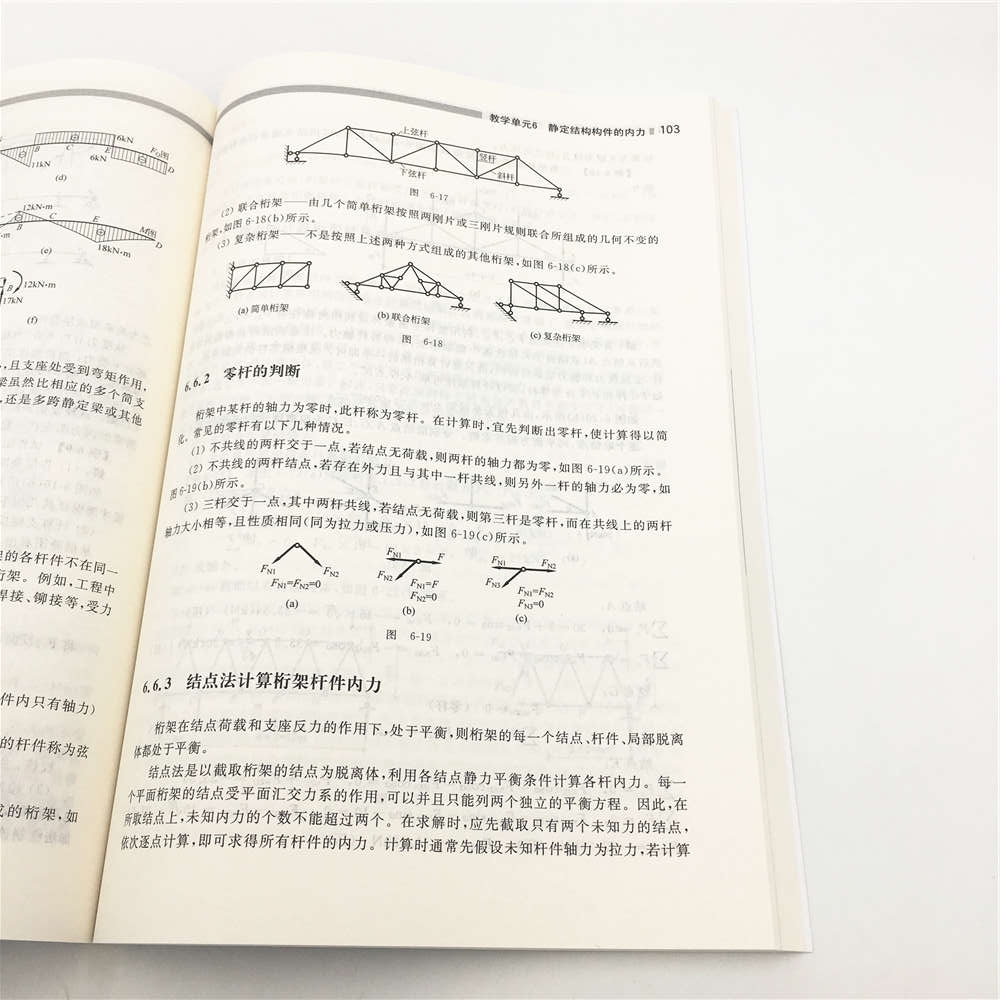 6kN
B
C
E
F_Q图
11kN
6kN
D
(d)
12kN·m
C
E
M图
D
18kN·m
(e)
12kN·m
B
17kN
(f)
,且支座处受到弯矩作用,
梁虽然比相应的多个简支
,还是多跨静定梁或其他
架的各杆件不在同一
桁架。例如,工程中
焊接、铆接等,受力
件内只有轴力)
的杆件称为弦
成的桁架,如
教学单元6 静定结构构件的内力 103
上弦杆
竖杆
下弦杆
斜杆
图 6-17
(2) 联合桁架——由几个简单桁架按照两刚片或三刚片规则联合所组成的几何不变的
桁架,如图 6-18(b)所示。
(3) 复杂桁架——不是按照上述两种方式组成的其他桁架,如图 6-18(c)所示。
(a) 简单桁架
(b) 联合桁架
(c) 复杂桁架
图 6-18
6.6.2 零杆的判断
桁架中某杆的轴力为零时,此杆称为零杆。在计算时,宜先判断出零杆,使计算得以简
化。常见的零杆有以下几种情况。
(1) 不共线的两杆交于一点,若结点无荷载,则两杆的轴力都为零,如图 6-19(a)所示。
(2) 不共线的两杆结点,若存在外力且与其中一杆共线,则另外一杆的轴力必为零,如
图 6-19(b)所示。
(3) 三杆交于一点,其中两杆共线,若结点无荷载,则第三杆是零杆,而在共线上的两杆
轴力大小相等,且性质相同(同为拉力或压力),如图 6-19(c)所示。
F_N1
F_N2
F_N1=F_N2=0
(a)
F_N1
F
F_N2
F_N1=F
F_N2=0
(b)
F_N1
F_N2
F_N3
F_N1=F_N2
F_N3=0
(c)
图 6-19
6.6.3 结点法计算桁架杆件内力
桁架在结点荷载和支座反力的作用下,处于平衡,则桁架的每一个结点、杆件、局部脱离
体都处于平衡。
结点法是以截取桁架的结点为脱离体,利用各结点静力平衡条件计算各杆内力。每一
个平面桁架的结点受平面汇交力系的作用,可以并且只能列两个独立的平衡方程。因此,在
所取结点上,未知内力的个数不能超过两个。在求解时,应先截取只有两个未知力的结点,
依次逐点计算,即可求得所有杆件的内力。计算时通常先假设未知杆件轴力为拉力,若计算